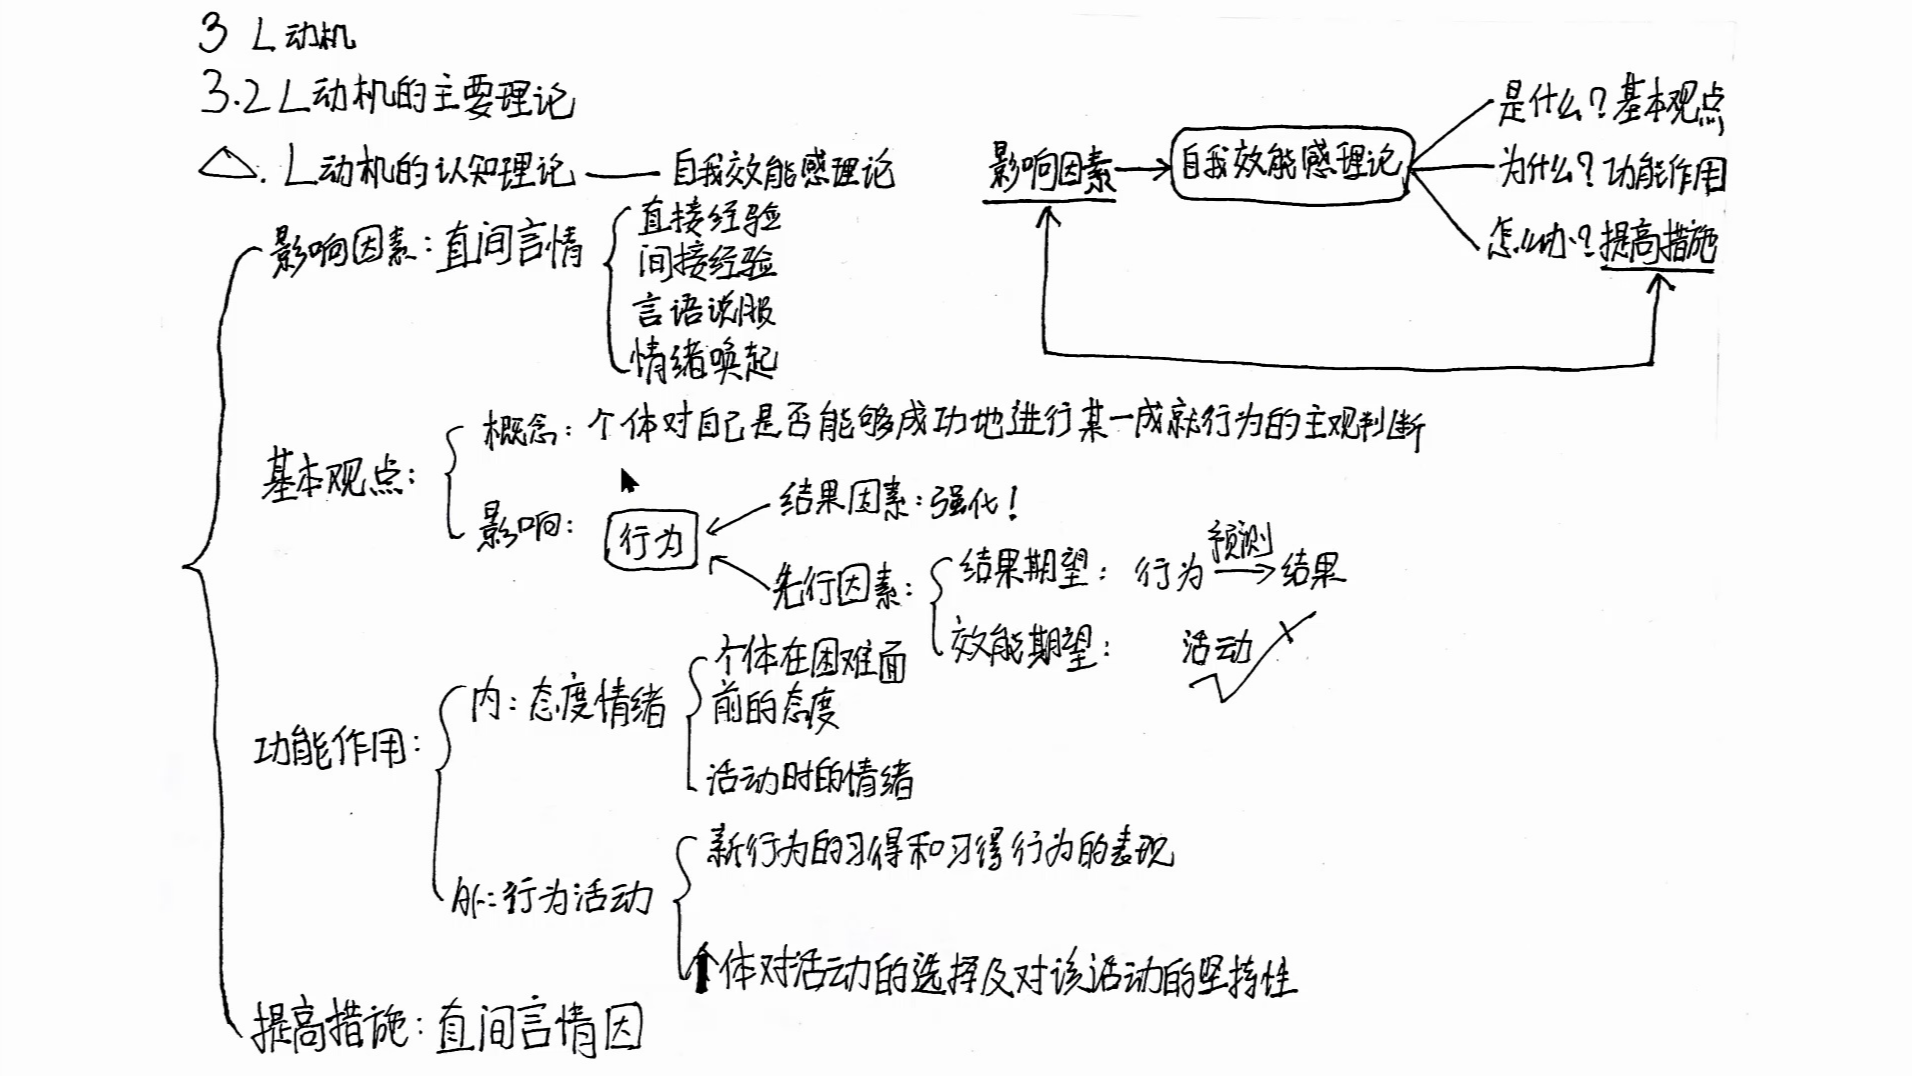 3 L动机
3.2 L动机的主要理论
△. L动机的认知理论——自我效能感理论
影响因素：直间言情
直接经验
间接经验
言语说服
情绪唤起
影响因素→自我效能感理论
是什么？基本观点
为什么？功能作用
怎么办？提高措施
基本观点：
概念：个体对自己是否能够成功地进行某一成就行为的主观判断
影响：行为
结果因素：强化！
先行因素：
结果期望：行为 预测→ 结果
效能期望：活动
功能作用：
内：态度情绪
个体在困难面
前的态度
活动时的情绪
外：行为活动
新行为的习得和习得行为的表现
个体对活动的选择及对该活动的坚持性
提高措施：直间言情因